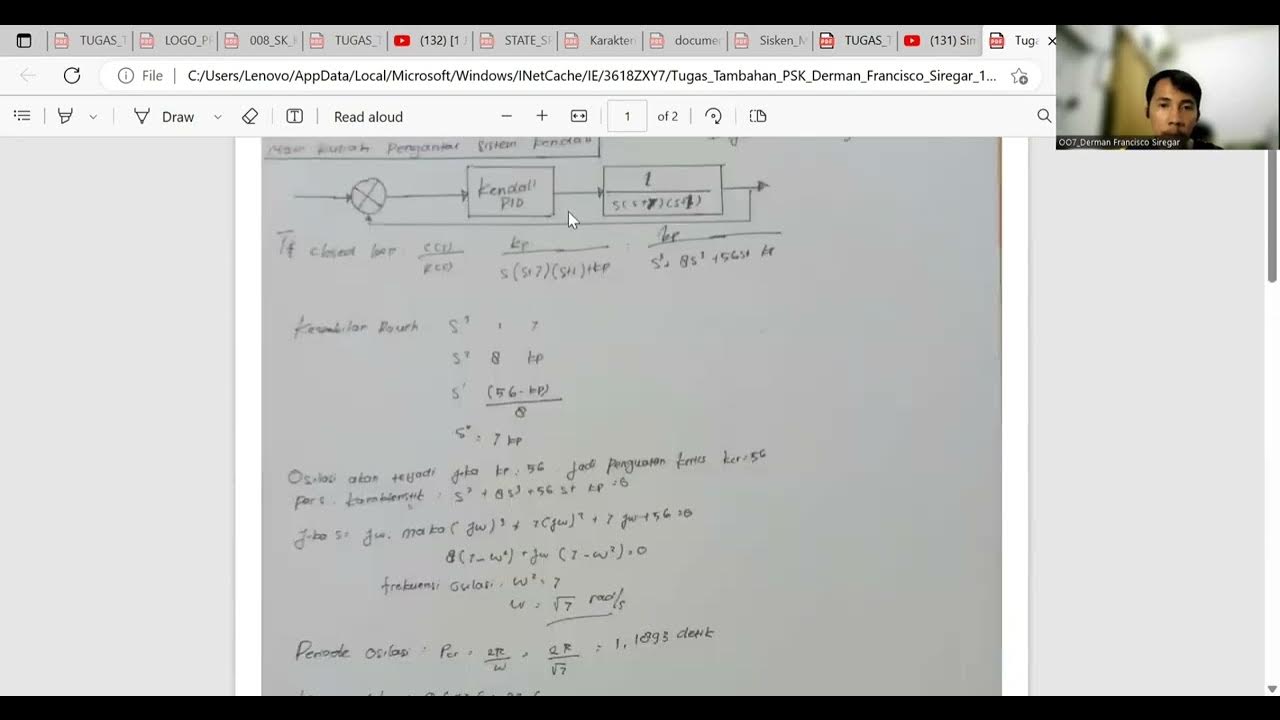 TUGAS_T
LOGO_PF
008_SK_
TUGAS_T
(132) [1 J
STATE_SF
Karakter
docume
Sisken_M
TUGAS_T
(131) Sim
Tuga
File
C:/Users/Lenovo/AppData/Local/Microsoft/Windows/INetCache/IE/3618ZXY7/Tugas_Tambahan_PSK_Derman_Francisco_Siregar_1...
Draw
Read aloud
1
of 2
OO7_Derman Francisco Siregar
Pengantar Sistem Kendali
Kendali
PID
1
Tf closed loop C(s) kp kp
R(s) s(s+7)(s+1)+kp s³+ 8s³ +56s+ kp
Routh S³ 1 7
S² 8 kp
S¹ (56-kp)
8
S⁰ : 7 kp
Osilasi akan terjadi jika kp: 56 Jadi penguatan kritis kcr=56
pers. : s³ + 8s³ +56 s+ kp =0
Jika s= jw. maka (jw)³ + 7(jw)² + 7 jw +56=0
8(7-w²) + jw (7-w²)=0
frekuensi osilasi: w² = 7
w = √7 rad/s
Periode osilasi : Pcr = 2π = 2π = 1,1893 detik
w √7